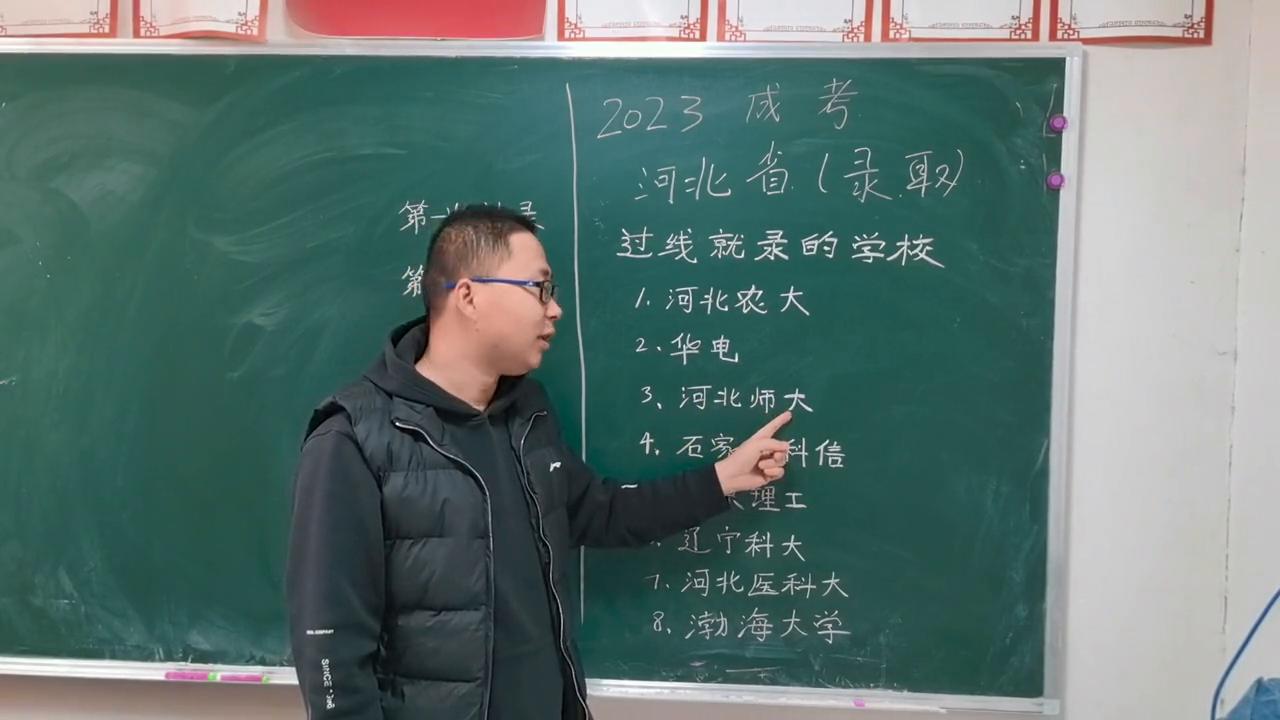 2023 成考
河北省(录取)
过线就录的学校
1. 河北农大
2. 华电
3、河北师大
4、石家 科信
理工
辽宁科大
7. 河北医科大
8. 渤海大学
第一
第
SINCE